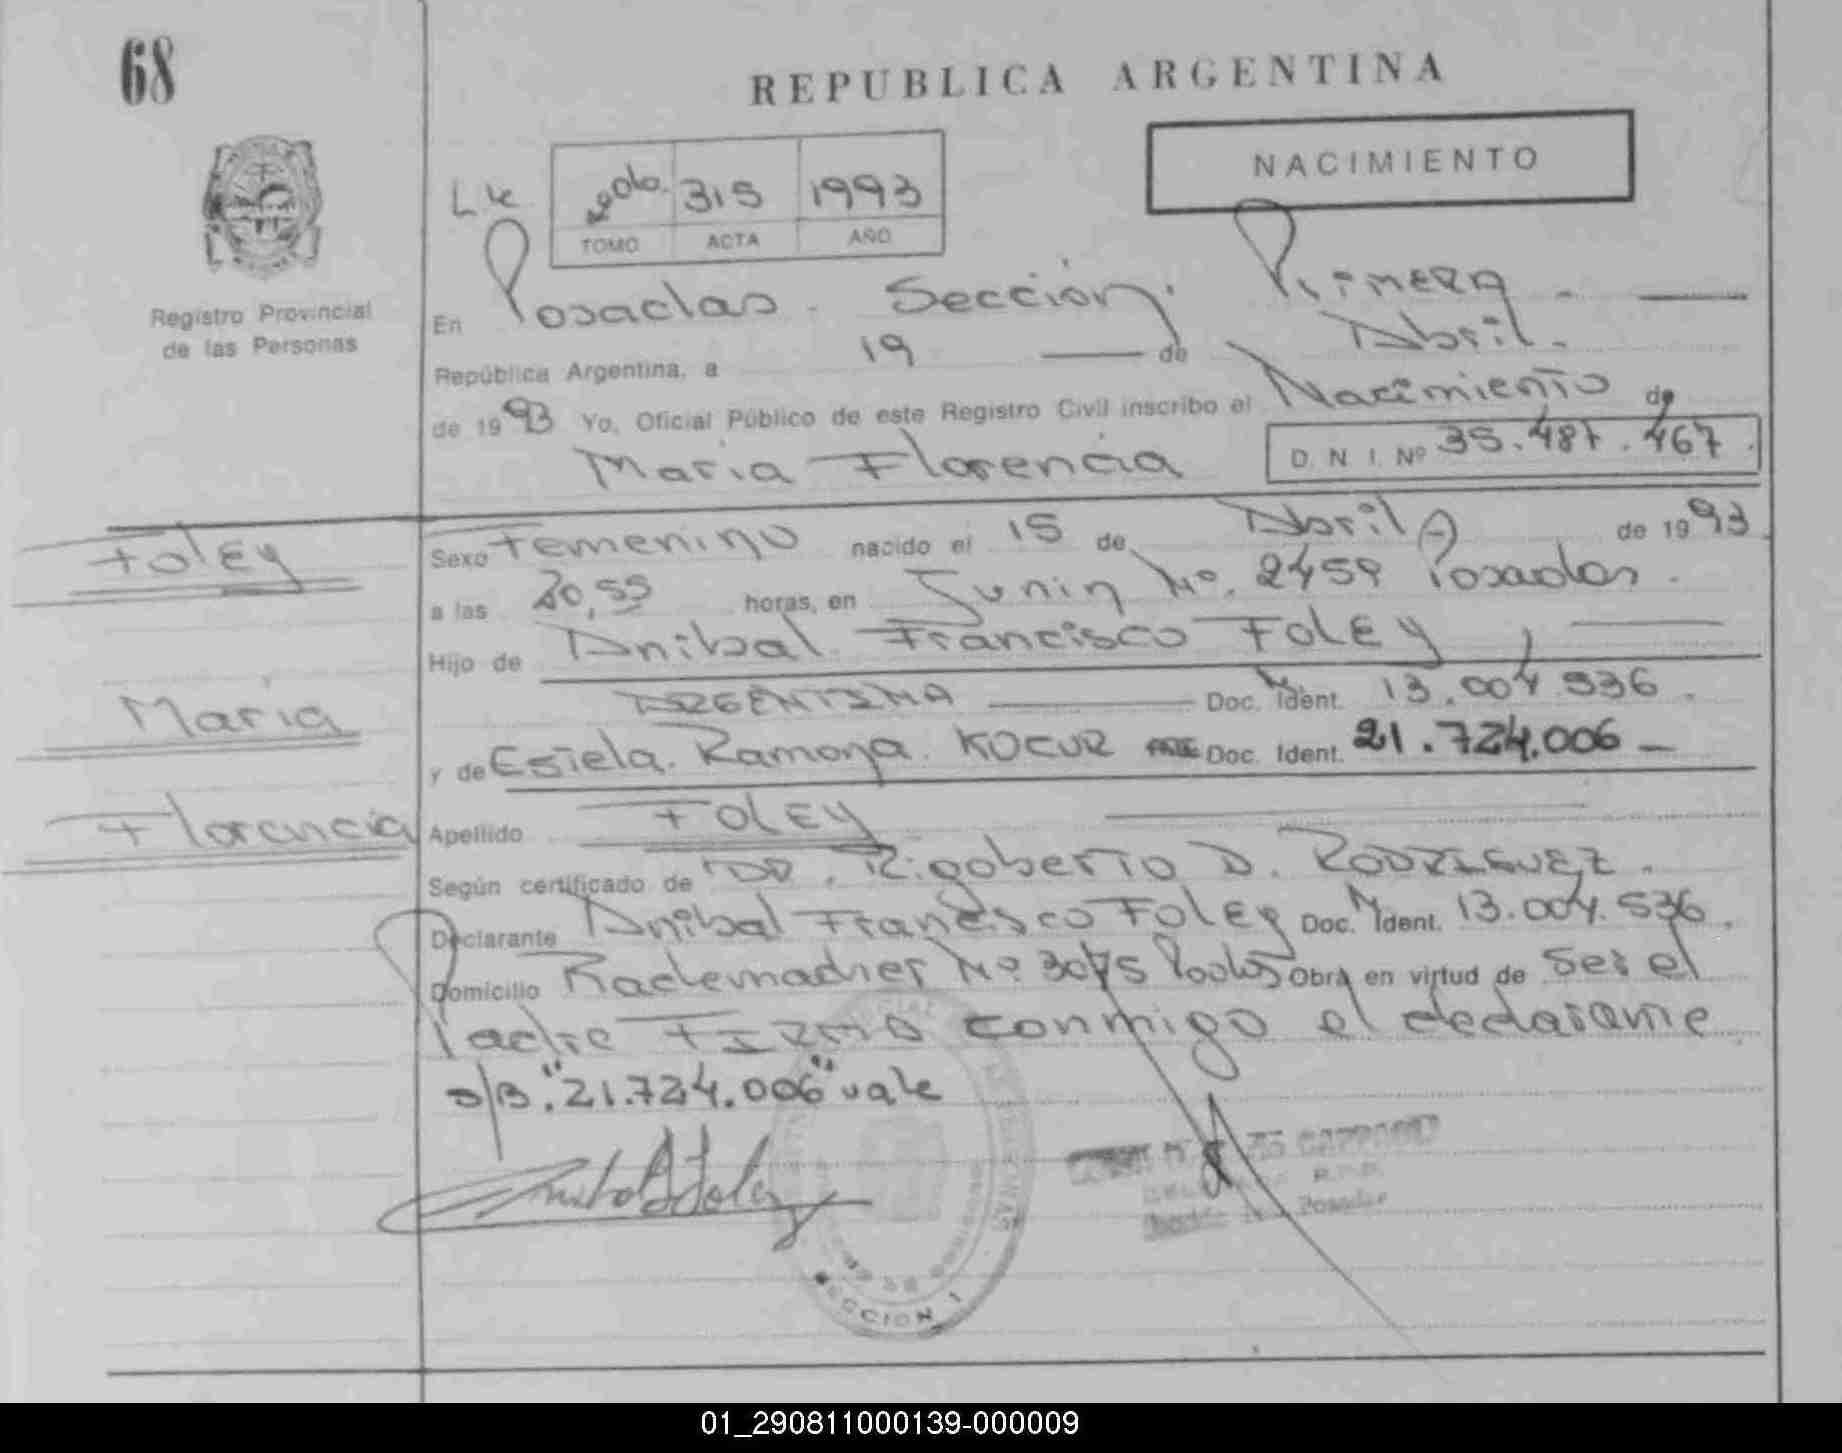 68
REPUBLICA ARGENTINA
NACIMIENTO
2do. 315 1993
TOMO ACTA AÑO
Registro Provincial
de las Personas
En Posadas. Sección. Primera.
República Argentina, a 19 de Abril.
de 1993 Yo, Oficial Público de este Registro Civil inscribo el Nacimiento de
Maria Florencia D. N. I. Nº 35.487.467.
Foley
Sexo Femenino nacido el 15 de Abril de 1993
a las 20,55 horas, en Junin Nº. 2459 Posadas.
Hijo de Anibal Francisco FOLEY,
ARGENTINA Doc. M. Ident. 13.004.536.
Maria
y de Estela. Ramona. KOCUR Doc. Ident. 21.724.006
Florencia
Apellido FOLEY
Según certificado de DR. Rigoberto D. RODRIGUEZ.
Declarante Anibal Francisco FOLEY Doc. M. Ident. 13.004.536.
Domicilio Rademacher Nº 3075 Obra en virtud de ser el
Padre FIRMA conmigo el declarante
s/B. "21.724.006" vale
SECCION 1
Posadas
01_290811000139-000009